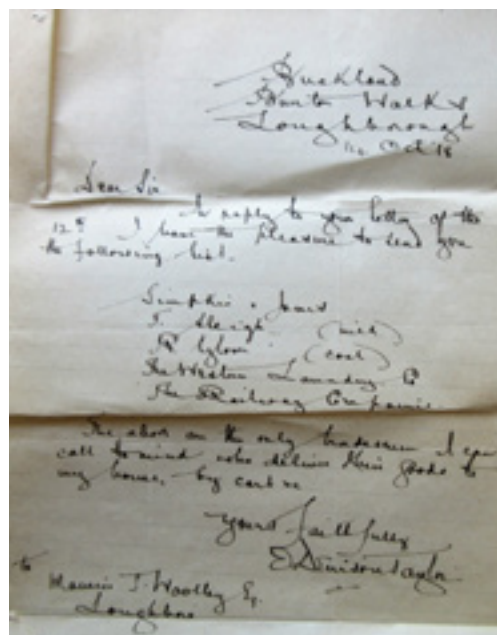 Buckland
Burton Walks
Loughborough
14 Oct 18
Dear Sir
In reply to your letter of the
12th I have the pleasure to send you
the following list.
Simpkin & James
T. Sleigh (milk)
(coal)
The Laundry Co
The Railway Companies
The above are the only tradesmen I can
call to mind who deliver their goods to
my house, by cart &c
Yours faithfully
E Denison Taylor
to
J. Woolley Esq.
Loughboro